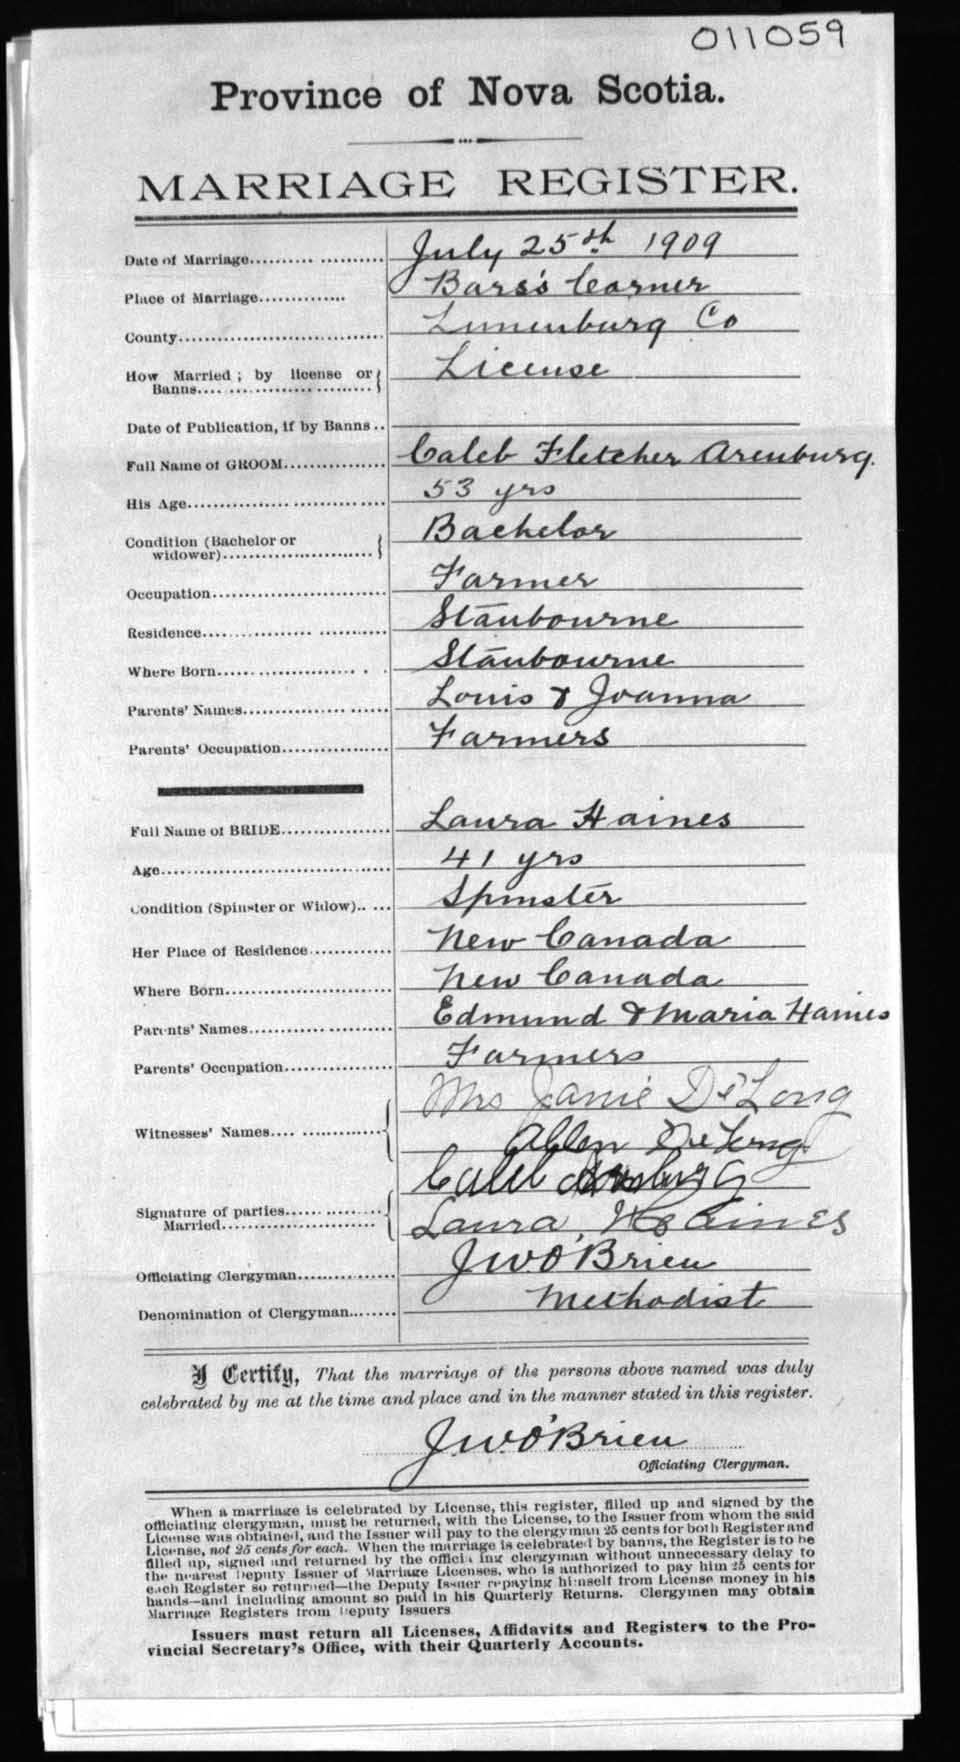 011059
Province of Nova Scotia.
MARRIAGE REGISTER.
Date of Marriage July 25th 1909
Place of Marriage Barss's Corner
County Lunenburg Co
How Married ; by license or Banns License
Date of Publication, if by Banns
Full Name of GROOM Caleb Fletcher Arenburg.
His Age 53 yrs
Condition (Bachelor or widower) Bachelor
Occupation Farmer
Residence Stanbourne
Where Born Stanbourne
Parents' Names Louis & Joanna
Parents' Occupation Farmers
Full Name of BRIDE Laura Haines
Age 41 yrs
Condition (Spinster or Widow) Spinster
Her Place of Residence New Canada
Where Born New Canada
Parents' Names Edmund & Maria Haines
Parents' Occupation Farmers
Witnesses' Names Mrs Janie DeLong
Allen DeLong
Signature of parties Married Caleb Arenburg
Laura Haines
Officiating Clergyman J W O'Brien
Denomination of Clergyman Methodist
I Certify, That the marriage of the persons above named was duly
celebrated by me at the time and place and in the manner stated in this register.
J W O'Brien
Officiating Clergyman.
When a marriage is celebrated by License, this register, filled up and signed by the
officiating clergyman, must be returned, with the License, to the Issuer from whom the said
License was obtained, and the Issuer will pay to the clergyman 25 cents for both Register and
License, not 25 cents for each. When the marriage is celebrated by banns, the Register is to be
filled up, signed and returned by the officiating clergyman without unnecessary delay to
the nearest Deputy Issuer of Marriage Licenses, who is authorized to pay him 25 cents for
each Register so returned—the Deputy Issuer repaying himself from License money in his
hands—and including amount so paid in his Quarterly Returns. Clergymen may obtain
Marriage Registers from Deputy Issuers
Issuers must return all Licenses, Affidavits and Registers to the Pro-
vincial Secretary's Office, with their Quarterly Accounts.